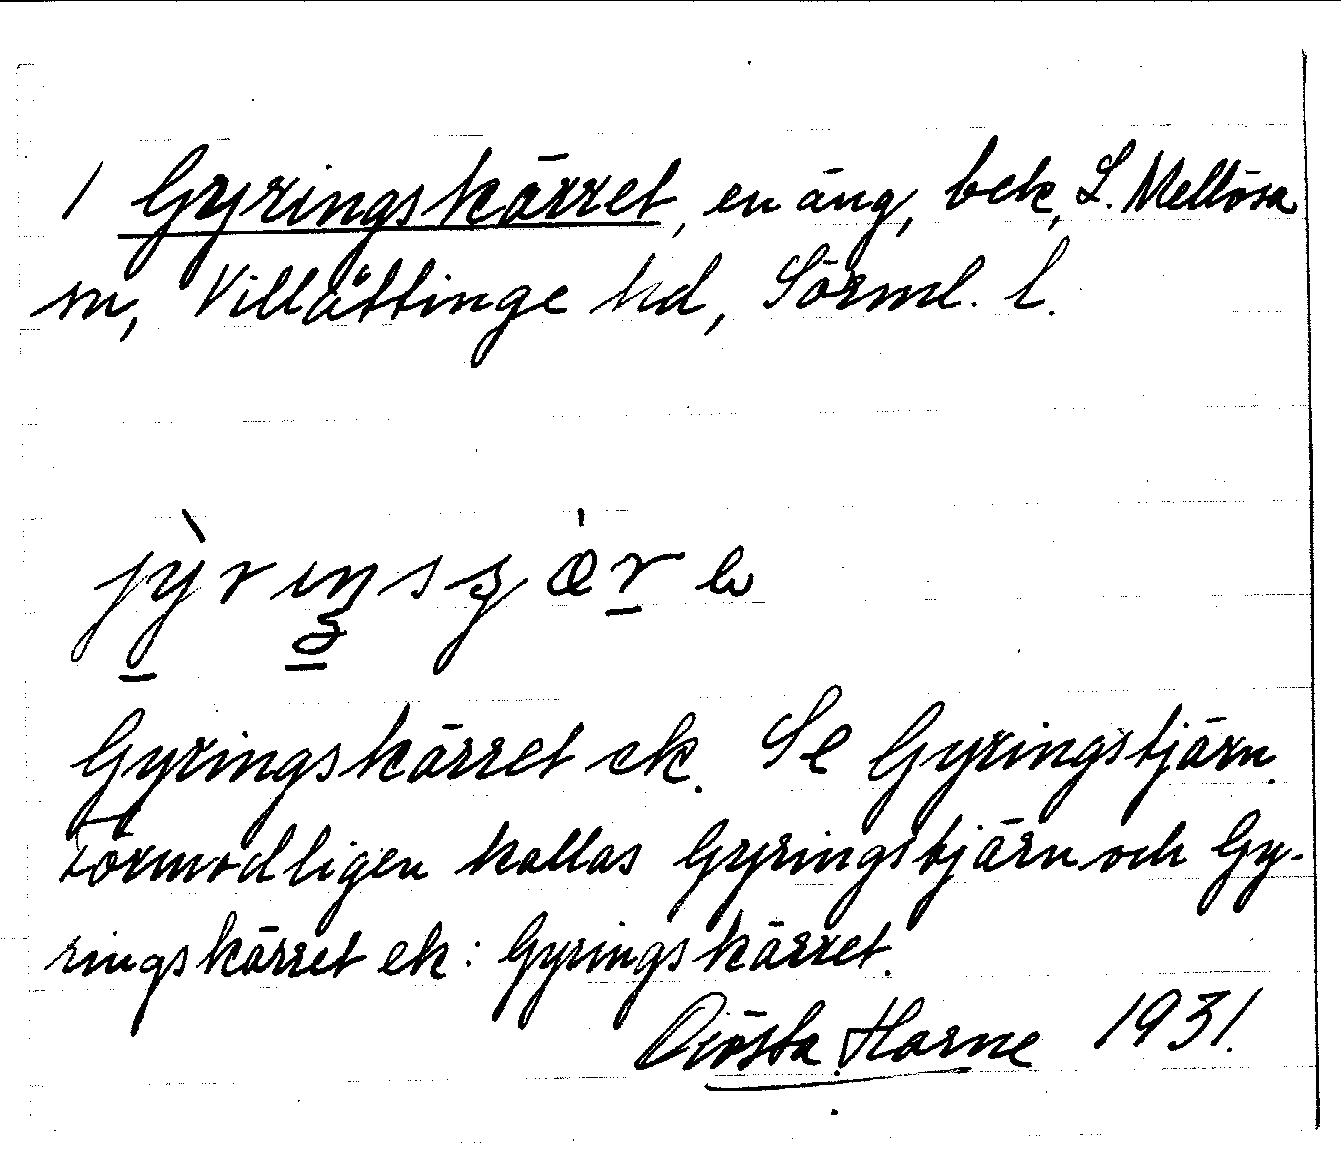 1 Gyringskärret, en äng, bek, L. Mellösa
sn, Villåttinge hd, Sörml. l.
Gyringskärret ek. Se Gyringstjärn.
Förmodligen kallas Gyringstjärn och Gy-
ringskärret ek: Gyringskärret.
Gösta Harne 1931.